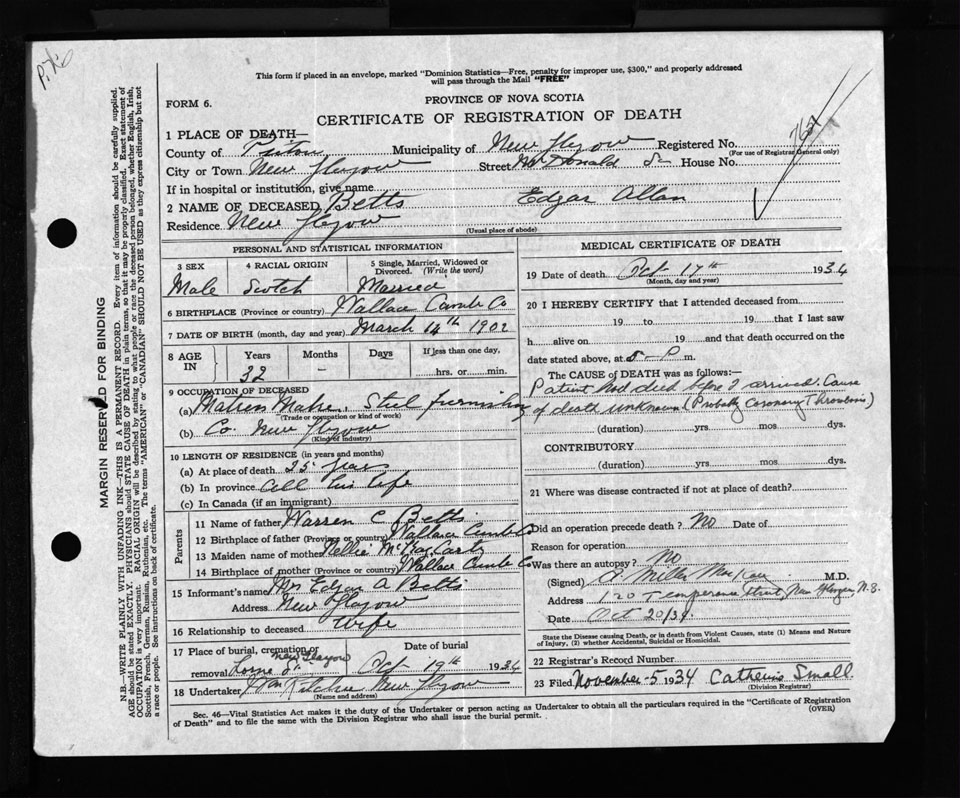 This form if placed in an envelope, marked "Dominion Statistics—Free, penalty for improper use, $300," and properly addressed
will pass through the Mail "FREE"
PROVINCE OF NOVA SCOTIA
FORM 6.
CERTIFICATE OF REGISTRATION OF DEATH
764
1 PLACE OF DEATH—
County of Pictou Municipality of New Glasgow Registered No.
(For use of Registrar General only)
City or Town New Glasgow Street McDonald St House No.
If in hospital or institution, give name
2 NAME OF DECEASED Betts Edgar Allan
Residence New Glasgow
(Usual place of abode)
PERSONAL AND STATISTICAL INFORMATION
3 SEX 4 RACIAL ORIGIN 5 Single, Married, Widowed or Divorced. (Write the word)
Male Scotch Married
6 BIRTHPLACE (Province or country) Wallace Cumb Co
7 DATE OF BIRTH (month, day and year) March 14th 1902
8 AGE IN Years Months Days If less than one day,
32 – hrs. or min.
9 OCCUPATION OF DECEASED
(a) Matress Maker, Steel furnishing
(Trade or occupation or kind of work)
(b) Co. New Glasgow
(Kind of industry)
10 LENGTH OF RESIDENCE (in years and months)
(a) At place of death 25 years
(b) In province all his life
(c) In Canada (if an immigrant)
Parents
11 Name of father Warren C Betts
12 Birthplace of father (Province or country) Wallace Cumb Co
13 Maiden name of mother Nellie
14 Birthplace of mother (Province or country) Wallace Cumb Co
15 Informant's name Mrs Edgar A Betts
Address New Glasgow
16 Relationship to deceased wife
17 Place of burial, cremation or removal New Glasgow Lorne St. Date of burial Oct 19th 1934
18 Undertaker New Glasgow
(Name and address)
MEDICAL CERTIFICATE OF DEATH
19 Date of death Oct 17th 1934
(Month, day and year)
20 I HEREBY CERTIFY that I attended deceased from
19 to 19 that I last saw
h alive on 19 and that death occurred on the
date stated above, at 5 - P m.
The CAUSE of DEATH was as follows:—
Patient had died before I arrived. Cause
of death unknown (Probably coronary Thrombosis)
(duration) yrs mos dys.
CONTRIBUTORY
(duration) yrs mos dys.
21 Where was disease contracted if not at place of death?
Did an operation precede death? No Date of
Reason for operation
Was there an autopsy? No
(Signed) G. Miller MacLean M.D.
Address 120 Temperance Street, New Glasgow N.S.
Date Oct 20/34
State the Disease causing Death, or in death from Violent Causes, state (1) Means and Nature
of Injury, (2) whether Accidental, Suicidal or Homicidal.
22 Registrar's Record Number
23 Filed November 5 1934 Catherine Small
(Division Registrar)
Sec. 46—Vital Statistics Act makes it the duty of the Undertaker or person acting as Undertaker to obtain all the particulars required in the "Certificate of Registration
of Death" and to file the same with the Division Registrar who shall issue the burial permit.
(OVER)
MARGIN RESERVED FOR BINDING
N.B.—WRITE PLAINLY WITH UNFADING INK—THIS IS A PERMANENT RECORD. Every item of information should be carefully supplied.
AGE should be stated EXACTLY. PHYSICIANS should STATE CAUSE OF DEATH in plain terms, so that it may be properly classified. Exact statement of
OCCUPATION is very important. RACIAL ORIGIN will be described by stating to what people or race the deceased person belonged, whether English, Irish,
Scottish, French, German, Russian, Ruthenian, etc. The terms "AMERICAN" or "CANADIAN" SHOULD NOT BE USED as they express citizenship but not
a race or people. See instructions on back of certificate.